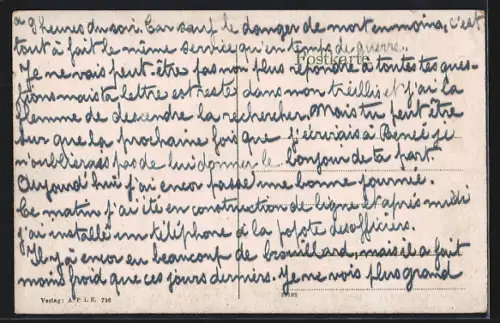 à 9 heures du soir. Car sauf le danger de mort en moins, c'est
tout à fait le même service qu'en temps de guerre.
Postkarte
Je ne vais peut-être pas non plus répondre à toutes tes ques-
tions mais ta lettre est resté dans mon treillis et j'ai la
flemme de descendre la rechercher. Mais tu peut être
sur que la prochaine fois que j'écrivais à Bencé je
n'oublierais pas de lui donner le bonjour de ta part.
Aujourd'hui j'ai encor passé une bonne journée.
Ce matin j'ai été en construction de ligne et après midi
j'ai installé un téléphone à la popote des officiers.
Il y a encor eu beaucoup de brouillard, mais il a fait
moins froid que ces jours derniers. Je ne vois plus grand
Verlag: A. P. i. E. 726